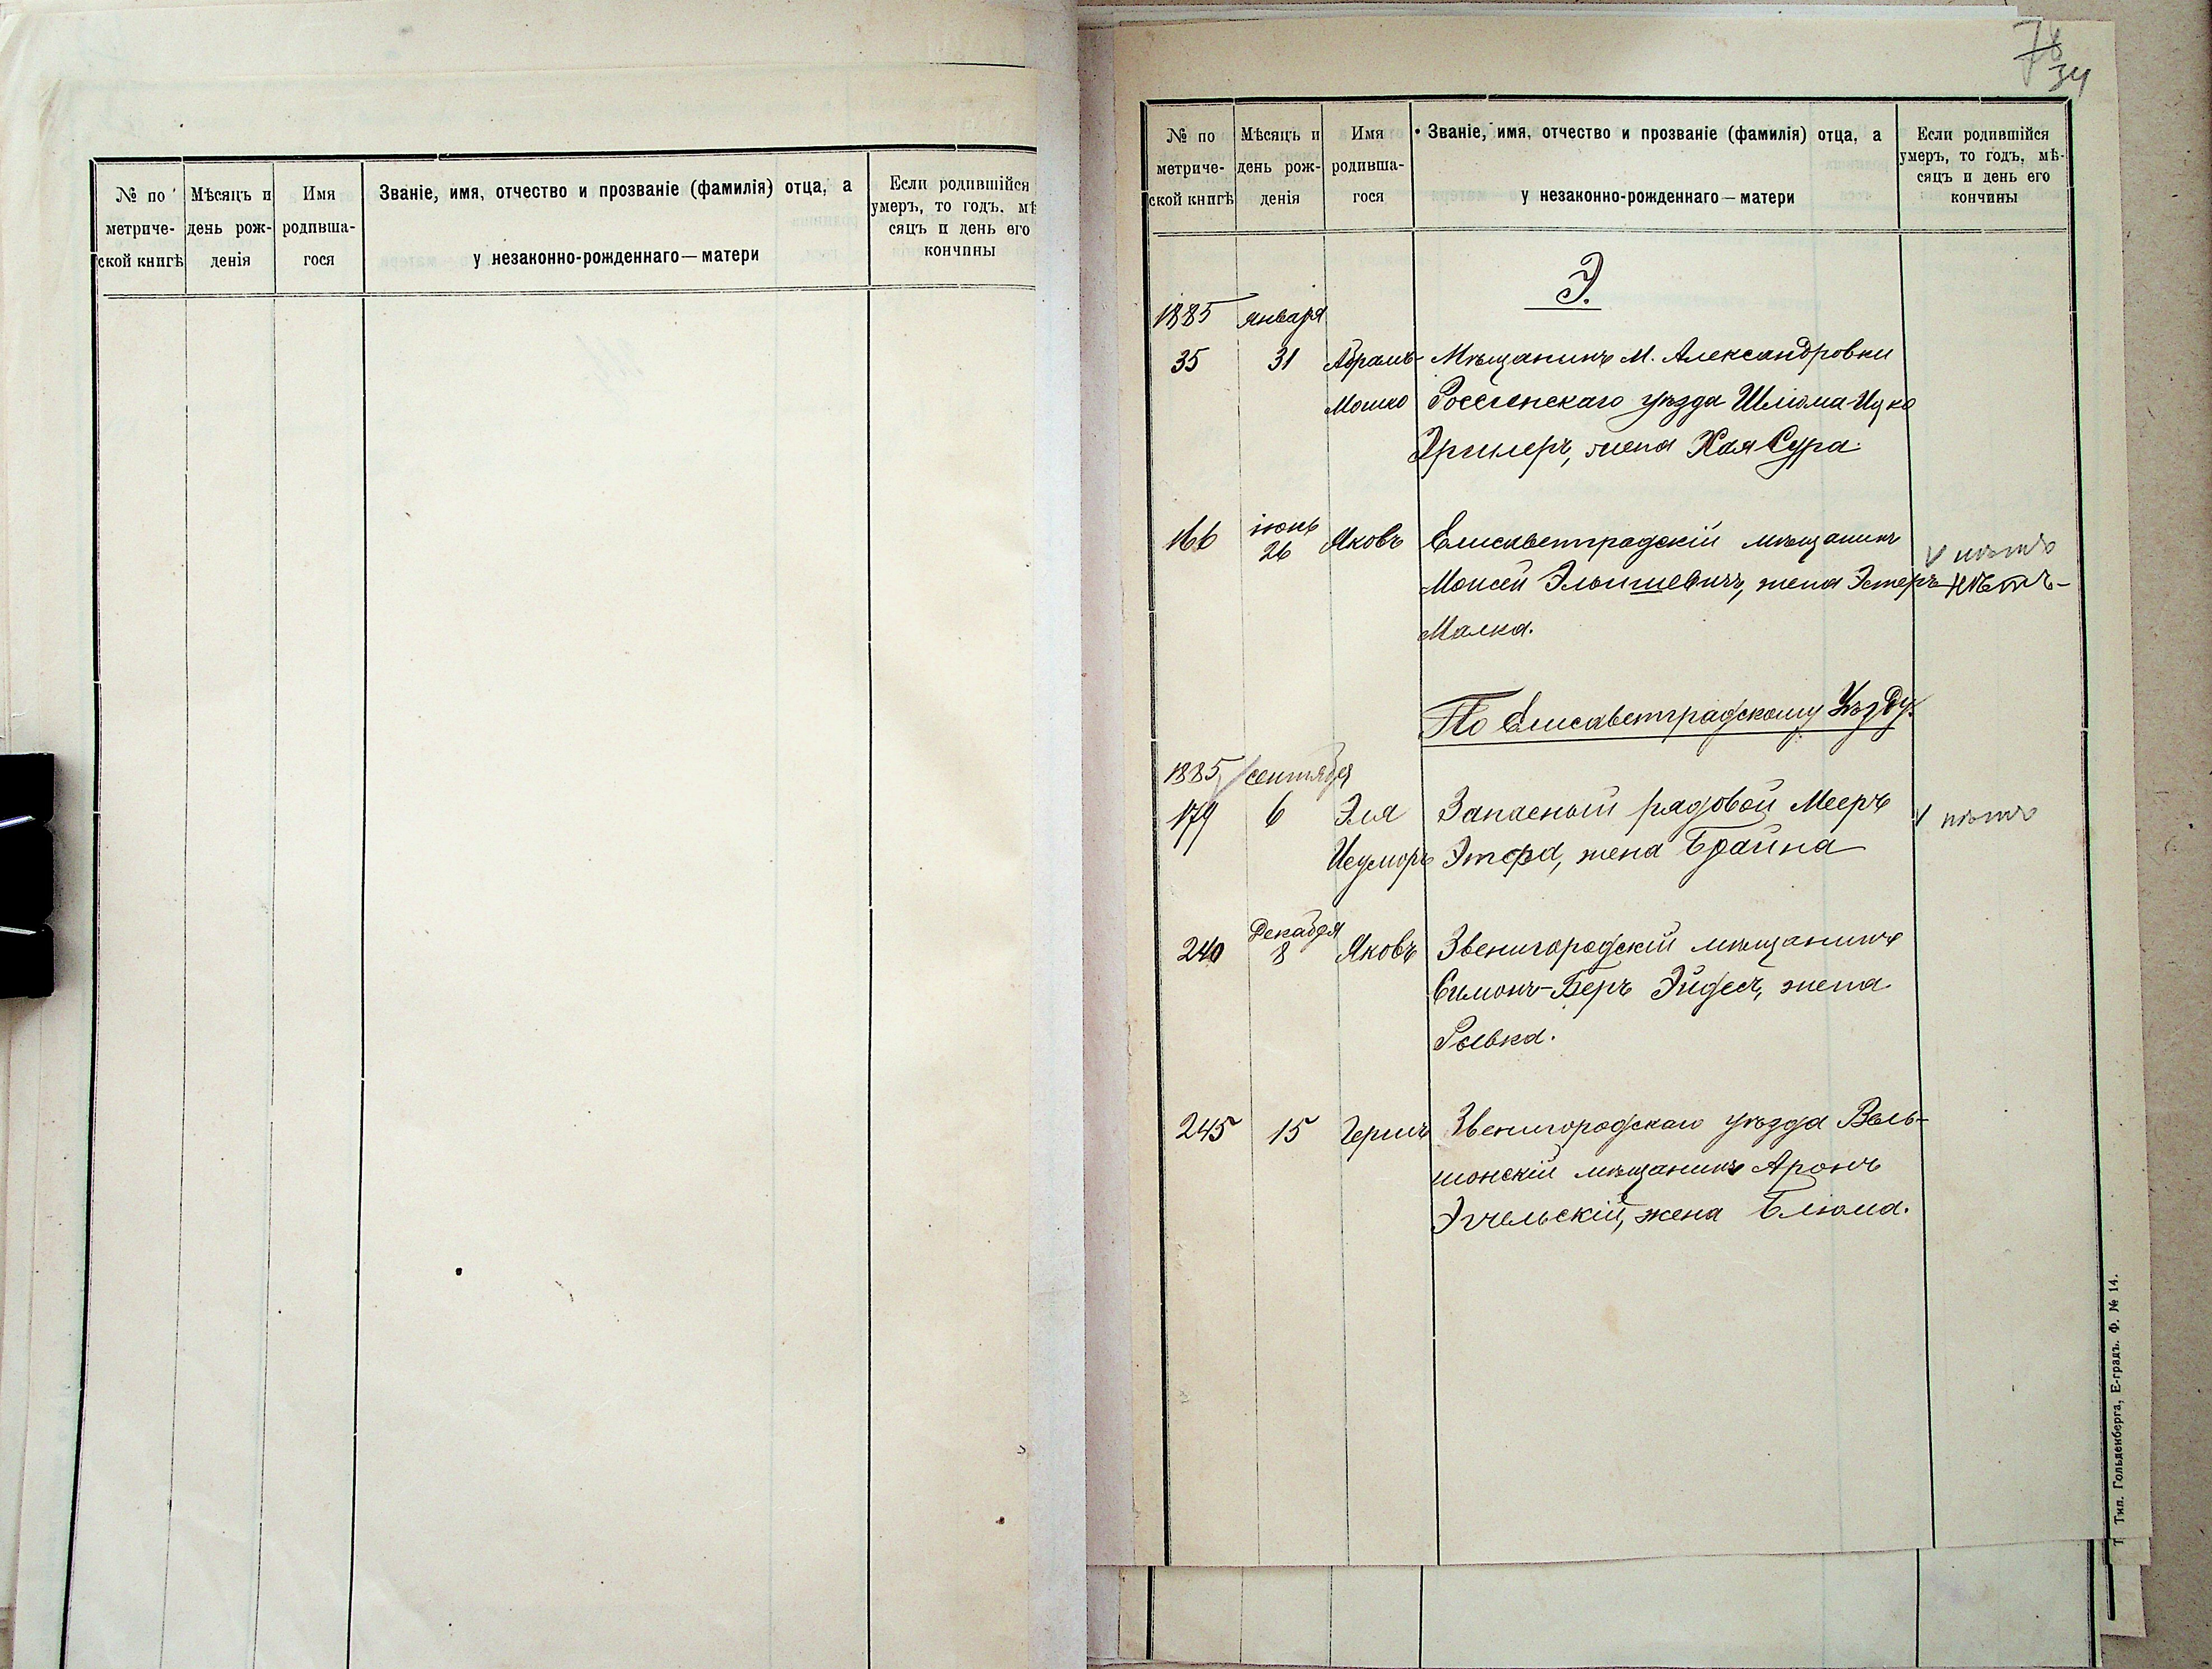 № по метриче- ской книгѣ
Мѣсяцъ и день рож- денія
Имя родивша- гося
Званіе, имя, отчество и прозваніе (фамилія) отца, а
у незаконно-рожденнаго — матери
Если родившійся
умеръ, то годъ. мѣ
сяцъ и день его
кончины
34
№ по метриче- ской книгѣ
Мѣсяцъ и день рож- денія
Имя родивша- гося
Званіе, имя, отчество и прозваніе (фамилія) отца, а
у незаконно-рожденнаго — матери
Если родившійся
умеръ, то годъ, мѣ-
сяцъ и день его
кончины
Э.
1885 января
35 31 Абрамъ- Мѣщанинъ М. Александровки
Мошко Россіенскаго уѣзда Шлiома-Ицко
жена Хая Сура.
166 іюнь 26 Яковъ Елисаветградскій мѣщанинъ
нѣтъ
Моисей Эльишевичъ, жена Эстеръ- нѣтъ-
Малка.
По Елисаветградскому Уѣзду.
1885 сентября
179 6 Эля Запасный рядовой Мееръ нѣтъ
жена Брайна
240 Декабря 8 Яковъ Звенигородскій мѣщанинъ
Симонъ-Беръ Эйдесъ, жена
Ривка.
245 15 Гершъ Звенигородскаго уѣзда
мѣщанинъ Аронъ
жена Блюма.
Тип. Гольденберга, Е-градъ. Ф. № 14.